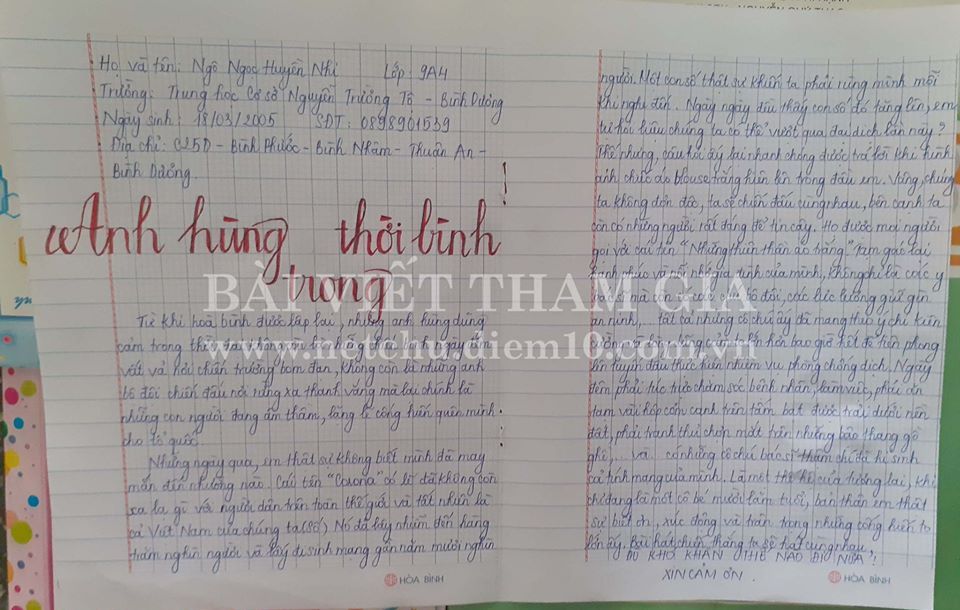 Họ và tên: Ngô Ngọc Huyền Nhi Lớp: 9A4
Trường: Trung học Cơ sở Nguyễn Trường Tộ - Bình Dương
Ngày sinh: 18/03/2005 SĐT: 0898901539
Địa chỉ: C25D - Bình Phước - Bình Nhâm - Thuận An -
Bình Dương.
Anh hùng thời bình
trong
BÀI VIẾT THAM GIA
www.netchudiem10.com.vn
Từ khi hoà bình được lập lại, những anh hùng dũng
cảm trong thời đại không còn
vất vả nơi chiến trường bom đạn, không còn là những anh
bộ đội chiến đấu nơi rừng xa thanh vắng mà lại chính là
những con người đang âm thầm, lặng lẽ cống hiến quên mình
cho tổ quốc.
Những ngày qua, em thật sự không biết mình đã may
mắn đến nhường nào. Cái tên "Corona" có lẽ đã không còn
xa lạ gì với người dân trên toàn thế giới và tất nhiên là
cả Việt Nam của chúng ta. Nó đã lây nhiễm đến hàng
trăm nghìn người và lấy đi sinh mạng gần năm mươi nghìn
HÒA BÌNH
người. Một con số thật sự khiến ta phải rùng mình mỗi
khi nghĩ đến. Ngày ngày đều thấy con số đó tăng lên, em
tự hỏi liệu chúng ta có thể vượt qua đại dịch lần này?
Thế nhưng, câu hỏi ấy lại nhanh chóng được trả lời khi hình
ảnh chiếc áo blouse trắng hiện lên trong đầu em. Vâng, chúng
ta không đơn độc, ta sẽ chiến đấu cùng nhau, bên cạnh ta
còn có những người rất đáng để tin cậy. Họ được mọi người
gọi với cái tên "Những thiên thần áo trắng" tạm gác lại
hạnh phúc và nỗi nhớ gia đình của mình, không chỉ là các y
bác sĩ mà còn có các chú bộ đội, các lực lượng giữ gìn
an ninh,... tất cả những cô chú ấy đã mang theo ý chí kiên
cường và hơn bao giờ hết để tiên phong
lên tuyến đầu thực hiện nhiệm vụ phòng chống dịch. Ngày
đêm phải túc trực chăm sóc bệnh nhân, làm việc, phải ăn
tạm vài hộp cơm canh trên tấm bạt được trải dưới nền
đất, phải tranh thủ chợp mắt trên những băng thang gỗ
ghế,... và có những cô chú bác sĩ thậm chí đã hi sinh
cả tính mạng của mình. Là một thế hệ của tương lai, khi
chỉ đang là một cô bé mười lăm tuổi, bản thân em thật
sự biết ơn, xúc động và trân trọng những cống hiến to
lớn ấy. Bài hát chiến thắng ta sẽ hát cùng nhau,
DÙ KHÓ KHĂN THẾ NÀO ĐI NỮA!
XIN CẢM ƠN.
HÒA BÌNH